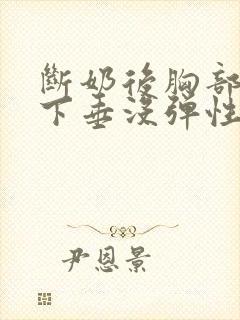 斷奶後胸部
下垂沒彈性
尹恩景